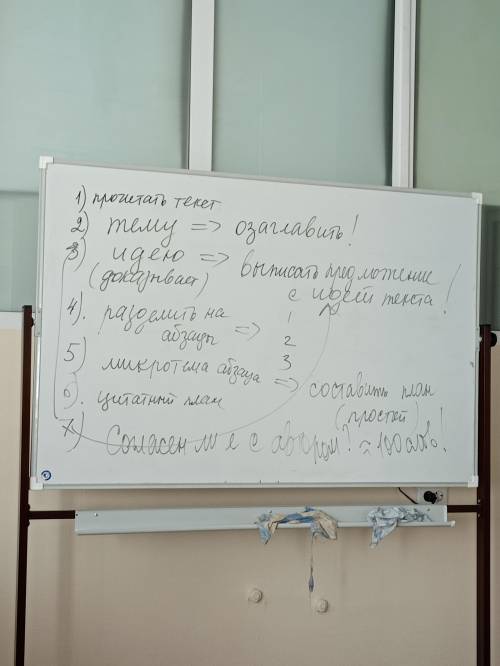 1) прочитать текст
2) тему => озаглавить!
3) идею => выписать предложение
(доказывает) с идеей текста!
4). разделить на 1
абзацы => 2
5) микротема абзаца 3
=> составить план
6). цитатный план (простой)
7) Согласен ли я с автром? ≈ 100 слов!